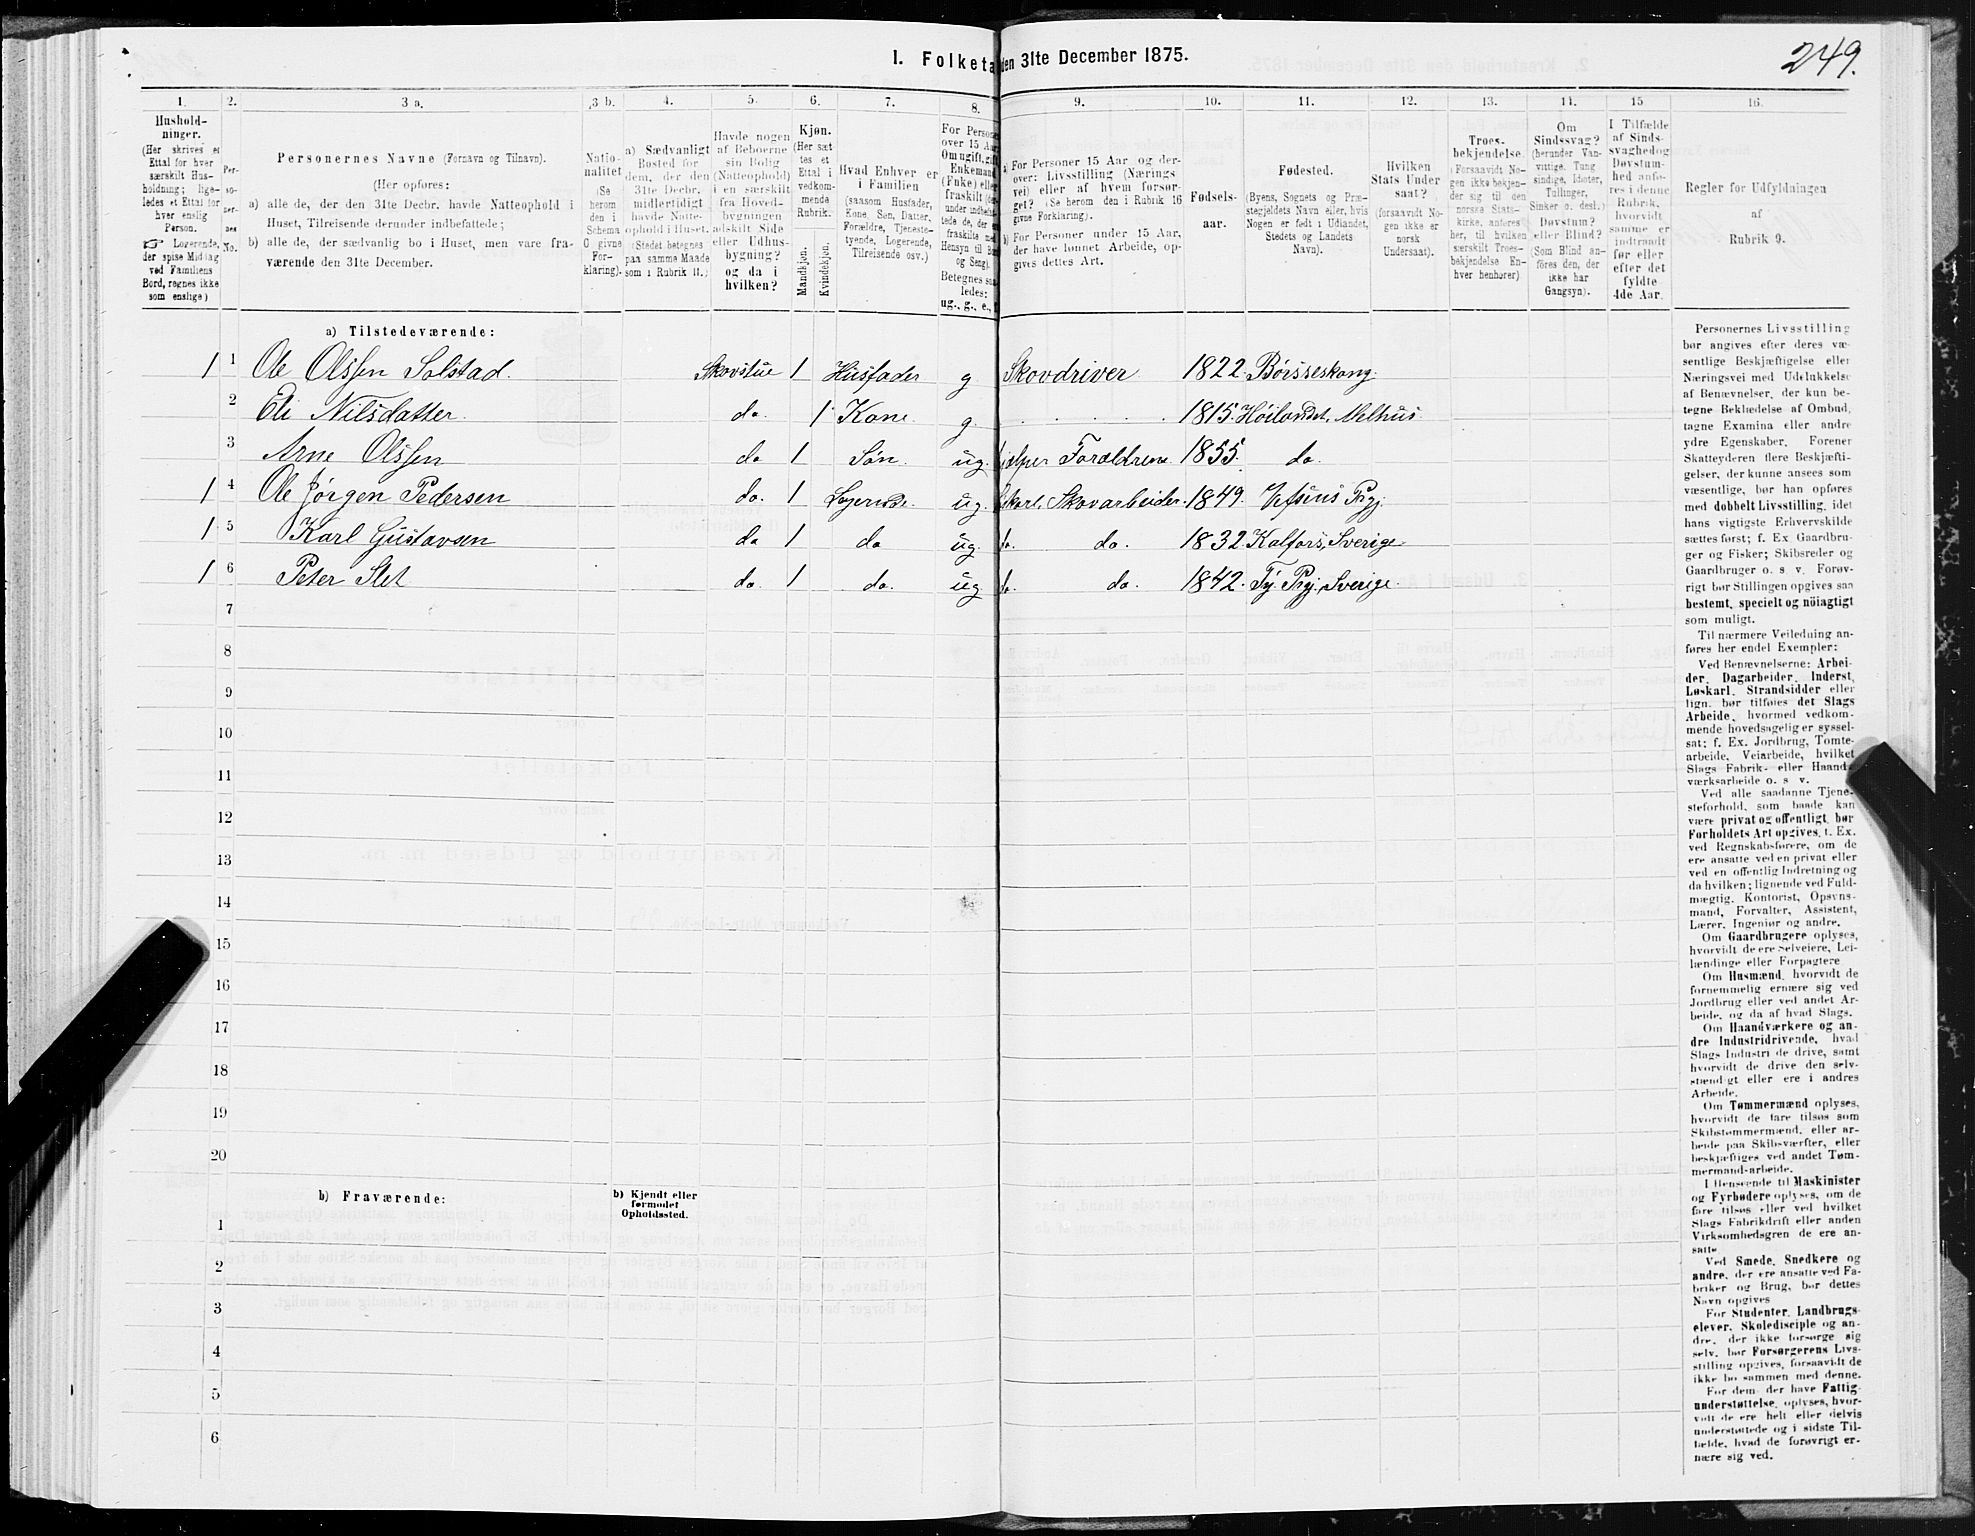 249.
I. Folketa den 31te December 1875.
1. 2. 3 a. 3 b. 4. 5. 6. 7. 8. 9. 10. 11. 12. 13. 14. 15 16.
Hushold-
ninger.
(Her skrives et
Ettal for hver
særskilt Hus-
holdning; lige-
ledes et Ettal for
hver enslig
Person.
☞ Logerende,
der spise Middag
ved Familiens
Bord, regnes ikke
som enslige)
Per-
so-
ner-
nes
No.
Personernes Navne (Fornavn og Tilnavn).
(Her opføres:
a) alle de, der den 31te Decbr. havde Natteophold i
Huset, Tilreisende derunder indbefattede;
b) alle de, der sædvanlig bo i Huset, men vare fra-
værende den 31te December.
Natio-
nalitet
(Se
herom
den i
Schema
C givne
For-
klaring).
a) Sædvanligt
Bosted for
dem, der den
31te Decbr.
midlertidigt
havde Natte-
ophold i Huset.
(Stedet betegnes
paa samme Maade
som i Rubrik 11.)
Havde nogen
af Beboerne
sin Bolig
(Natteophold)
i en særskilt
fra Hoved-
bygningen
adskilt Side
eller Udhus-
bygning?
og da i
hvilken?
Kjøn.
(Her sæt
tes et
Ettal i
vedkom-
mende
Rubrik.
Mandkjøn.
Kvindekjøn.
Hvad Enhver er
i Familien
(saasom Husfader,
Kone, Søn, Datter,
Forældre, Tjeneste-
tyende, Logerende,
Tilreisende osv.)
For Persone
over 15 Aar
Om ugift, gift
Enkemand
(Enke) eller
fraskilt
Betegnes saa
ledes:
ug., g., e.,
a) For Personer 15 Aar og der-
over: Livsstilling (Nærings
vei) eller af hvem forsør-
get? (Se herom den i Rubrik 16
givne Forklaring).
b) For Personer under 15 Aar,
der have lønnet Arbeide, op-
gives dettes Art.
Fødsels-
aar.
Fødested.
(Byens, Sognets og Præ-
stegjeldets Navn eller, hvis
Nogen er født i Udlandet,
Stedets og Landets
Navn).
Hvilken
Stats Under
saat?
(forsaavidt No-
gen ikke er
norsk
Undersaat).
Troes-
bekjendelse.
(Forsaavidt No-
gen ikke bekjen-
der sig til den
norske Stats-
kirke, anføres
her, til hvilken
særskilt Troes-
bekjendelse En-
hver henhører)
Om
Sindssvag?
(herunder Van-
vittige, Tung
sindige, Idioter,
Tullinger,
Sinker o. desl.)
Døvstum?
eller Blind?
(Som Blind an-
føres den, der
ikke har
Gangsyn).
I Tilfælde
af Sinds-
svaghed og
Døvstum-
hed anfø-
res i denne
Rubrik,
hvorvidt
samme er
indtraadt
før eller
efter det
fyldte
4de Aar.
Regler for Udfyldningen
af
Rubrik 9.
a) Tilstedeværende:
1 1 Ole Olssen Solstad. Skovstue 1 Husfader g Skovdriver 1822 Børsseskong.
2 Eli Nilsdatter do. 1 Kone. g. 1815. Høilandet, Melhus
3 Arne Olssen do 1 Søn. ug. jælper Forældrene 1855. do.
1 4 Ole Jørgen Pedersen do. 1 Logerende ug. Skovarbeider. 1849.
1 5 Karl Gustavsen do 1 do ug. do. do. 1832. Kalfors, Sverige
1 6 Peter Slet do. 1 do. ug do. do. 1842. Sverige.
7
8
9
10
11
12
13
14
15
16
17
18
19
20
b) Fraværende:
b) Kjendt eller
formodet
Opholdssted.
1
2
3
4
5
6
Personernes Livsstilling
bør angives efter deres væ-
sentlige Beskjæftigelse eller
Næringsvei med Udelukkelse
af Benævnelser, der kun be-
tegne Beklædelse af Ombud,
tagne Examina eller andre
ydre Egenskaber. Forener
Skatteyderen flere Beskjæfti-
gelser, der kunne ansees som
væsentlige, bør han opføres
med dobbelt Livsstilling, idet
hans vigtigste Erhvervskilde
sættes først; f. Ex Gaardbru-
ger og Fisker; Skibsreder og
Gaardbruger o. s. v. Forøv-
rigt bør Stillingen opgives saa
bestemt, specielt og nöiagtigt
som muligt.
Til nærmere Veiledning an-
føres her endel Exempler:
Ved Benævnelserne: Arbei-
der, Dagarbeider, Inderst,
Løskarl, Strandsidder eller
lign. bør tilføies det Slags
Arbeide, hvormed vedkom-
mende hovedsagelig er syssel-
sat; f. Ex. Jordbrug, Tomte-
arbeide, Veiarbeide, hvilket
Slags Fabrik- eller Haand-
værksarbeide o. s v.
Ved alle saadanne Tjene-
steforhold, som baade kan
være privat og offentligt, bør
Forholdets Art opgives, f. Ex.
ved Regnskabsførere, om de
ere ansatte ved en privat eller
ved en offentlig Indretning og
da hvilken; lignende ved Fuld-
mægtig, Kontorist, Opsyns-
mand, Forvalter, Assistent,
Lærer, Ingeniør og andre.
Om Gaardbrugere oplyses,
hvorvidt de ere Selveiere, Lei-
lændinge eller Forpagtere
Om Husmænd, hvorvidt de
fornemmelig ernære sig ved
Jordbrug eller ved andet Ar-
beide, og da af hvad Slags.
Om Haandværkere og an-
dre Industridrivende, hvad
Slags Industri de drive, samt
hvorvidt de drive den selv-
stændigt eller ere i andres
Arbeide.
Om Tømmermænd oplyses,
hvorvidt de fare tilsøs som
Skibstømmermænd, eller ar-
beide paa Skibsværfter, eller
beskjæftiges ved andet Tøm-
mermand-arbeide.
I Henseende til Maskinister
og Fyrbødere oplyses, om de
fare tilsøs eller ved hvilket
Slags Fabrikdrift eller anden
Virksomhedsgren de ere an-
satte
Ved Smede, Snedkere og
andre, der ere ansatte ved Fa-
briker og Brug, bør dettes
Navn opgives
For Studenter, Landbrugs-
elever, Skoledisciple og an-
dre, der ikke forsørge sig
selv, bør Forsørgerens Livs-
stilling opgives, forsaavidt de
ikke bo sammen med denne.
For dem, der have Fattig-
understøttelse, oplyses, hvor-
vidt de ere helt eller delvis
understøttede og i sidste Til-
fælde, hvad de forøvrigt er-
nære sig ved.